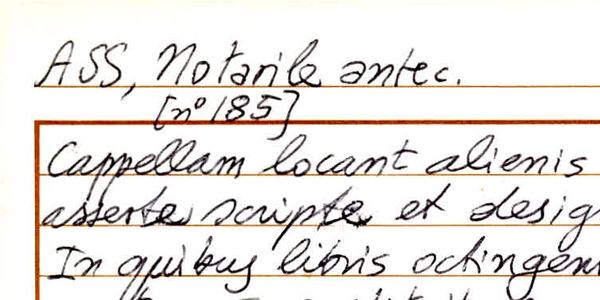 ASS, Notarile antec.
[n° 185]
Cappellam locant alienis
asserte scripte et desig
In quibus libris octingen